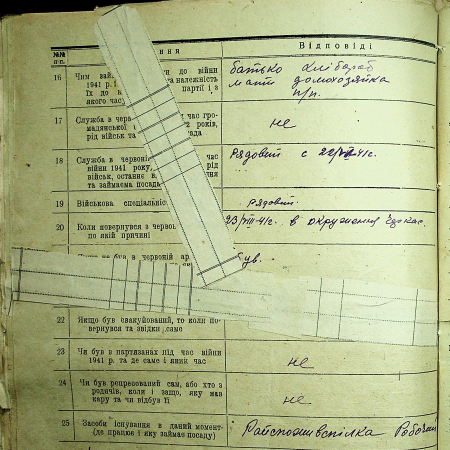 №№ п-п.
ння
Відповіді
16 Чим зай
ли до війни
1941 р.
та належність
Їх до к
партії і з
якого час
батько хлібороб
мати домохозяйка
п/п.
17 Служба в черв
час гро-
мадянської і
років,
рід військ та
ада
не
18 Служба в червоні
час
війни 1941 року,
рід
військ, останнє в
ння
та займаєма посада
рядовий с
19 Військова спеціальніс
рядовий
20 Коли повернувся з черво
по якій причині
в окружения
не був в червоній ар
був.
22 Якщо був евакуйований, то коли по-
вернувся та звідки саме
23 Чи був в партизанах під час війни
1941 р. та де саме і який час
не
24 Чи був репресований сам, або хто з
родичів, коли і защо, яку мав
кару та чи відбув її
не
25 Засоби існування в даний момент-
(де працює і яку займає посаду)
Райспоживспілка Робочий